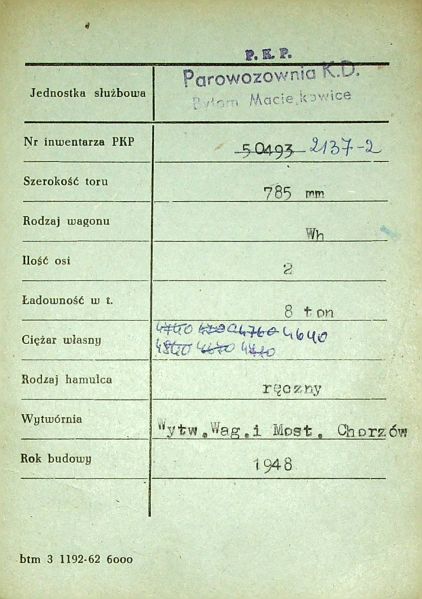 P. K. P.
Parowozownia K.D.
Jednostka służbowa
Bytom Maciejkowice
Nr inwentarza PKP 50493 2137-2
Szerokość toru 785 mm
Rodzaj wagonu Wh
Ilość osi 2
Ładowność w t. 8 ton
4760 4640
Ciężar własny
Rodzaj hamulca ręczny
Wytwórnia Wytw.Wag.i Most. Chorzów
Rok budowy 1948
btm 3 1192-62 6000